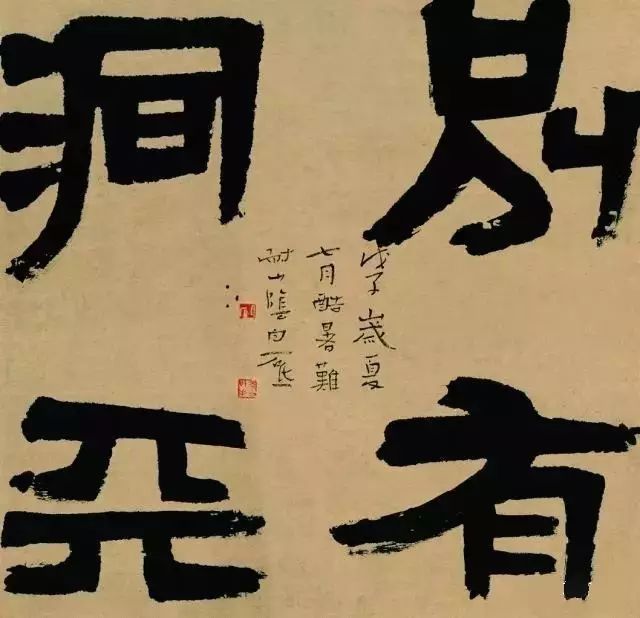 别有
洞天
戊子歲夏
七月酷暑難
耐山陰白砥